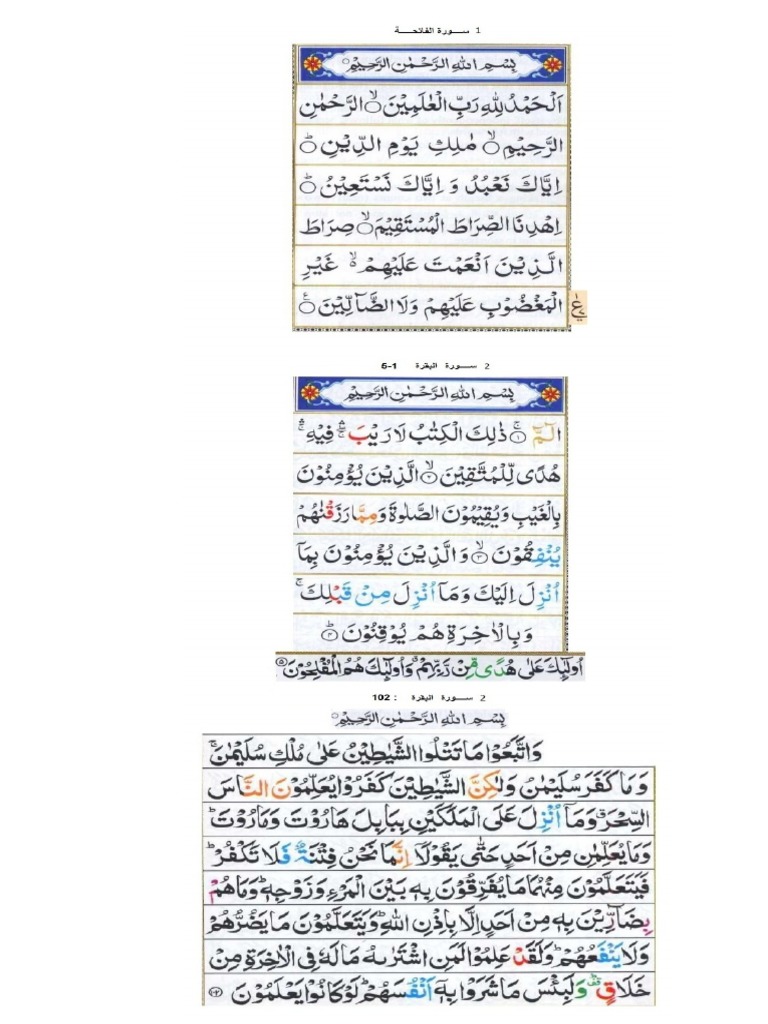 1 ســـورة الفاتحـــة
بِسْمِ اللهِ الرَّحْمٰنِ الرَّحِيْمِ
اَلْحَمْدُ لِلّٰهِ رَبِّ الْعٰلَمِيْنَ ۙ الرَّحْمٰنِ
الرَّحِيْمِ ۙ مٰلِكِ يَوْمِ الدِّيْنِ ؕ
اِيَّاكَ نَعْبُدُ وَ اِيَّاكَ نَسْتَعِيْنُ ؕ
اِهْدِنَا الصِّرَاطَ الْمُسْتَقِيْمَ ۙ صِرَاطَ
الَّذِيْنَ اَنْعَمْتَ عَلَيْهِمْ ۙ غَيْرِ
الْمَغْضُوْبِ عَلَيْهِمْ وَلَا الضَّآلِّيْنَ ع
2 ســـورة البقرة 1-5
بِسْمِ اللهِ الرَّحْمٰنِ الرَّحِيْمِ
الٓمّٓ ۚ ۱ ذٰلِكَ الْكِتٰبُ لَا رَيْبَ ۛ فِيْهِ ۛ
هُدًى لِّلْمُتَّقِيْنَ ۙ ۲ الَّذِيْنَ يُؤْمِنُوْنَ
بِالْغَيْبِ وَيُقِيْمُوْنَ الصَّلٰوةَ وَمِمَّا رَزَقْنٰهُمْ
يُنْفِقُوْنَ ۙ ۳ وَالَّذِيْنَ يُؤْمِنُوْنَ بِمَآ
اُنْزِلَ اِلَيْكَ وَمَآ اُنْزِلَ مِنْ قَبْلِكَ ۚ
وَبِالْاٰخِرَةِ هُمْ يُوْقِنُوْنَ ؕ ۴
اُولٰٓئِكَ عَلٰى هُدًى مِّنْ رَّبِّهِمْ وَاُولٰٓئِكَ هُمُ الْمُفْلِحُوْنَ ۵
2 ســـورة البقرة : 102
بِسْمِ اللهِ الرَّحْمٰنِ الرَّحِيْمِ
وَاتَّبَعُوْا مَا تَتْلُوا الشَّيٰطِيْنُ عَلٰى مُلْكِ سُلَيْمٰنَ ۚ
وَمَا كَفَرَ سُلَيْمٰنُ وَلٰكِنَّ الشَّيٰطِيْنَ كَفَرُوْا يُعَلِّمُوْنَ النَّاسَ
السِّحْرَ ۗ وَمَآ اُنْزِلَ عَلَى الْمَلَكَيْنِ بِبَابِلَ هَارُوْتَ وَمَارُوْتَ ؕ
وَمَا يُعَلِّمٰنِ مِنْ اَحَدٍ حَتّٰى يَقُوْلَآ اِنَّمَا نَحْنُ فِتْنَةٌ فَلَا تَكْفُرْ ؕ
فَيَتَعَلَّمُوْنَ مِنْهُمَا مَا يُفَرِّقُوْنَ بِهٖ بَيْنَ الْمَرْءِ وَزَوْجِهٖ ؕ وَمَا هُمْ
بِضَآرِّيْنَ بِهٖ مِنْ اَحَدٍ اِلَّا بِاِذْنِ اللهِ ؕ وَيَتَعَلَّمُوْنَ مَا يَضُرُّهُمْ
وَلَا يَنْفَعُهُمْ ؕ وَلَقَدْ عَلِمُوْا لَمَنِ اشْتَرٰىهُ مَا لَهٗ فِى الْاٰخِرَةِ مِنْ
خَلَاقٍ ۛ وَلَبِئْسَ مَا شَرَوْا بِهٖٓ اَنْفُسَهُمْ ؕ لَوْ كَانُوْا يَعْلَمُوْنَ ۱۰۲